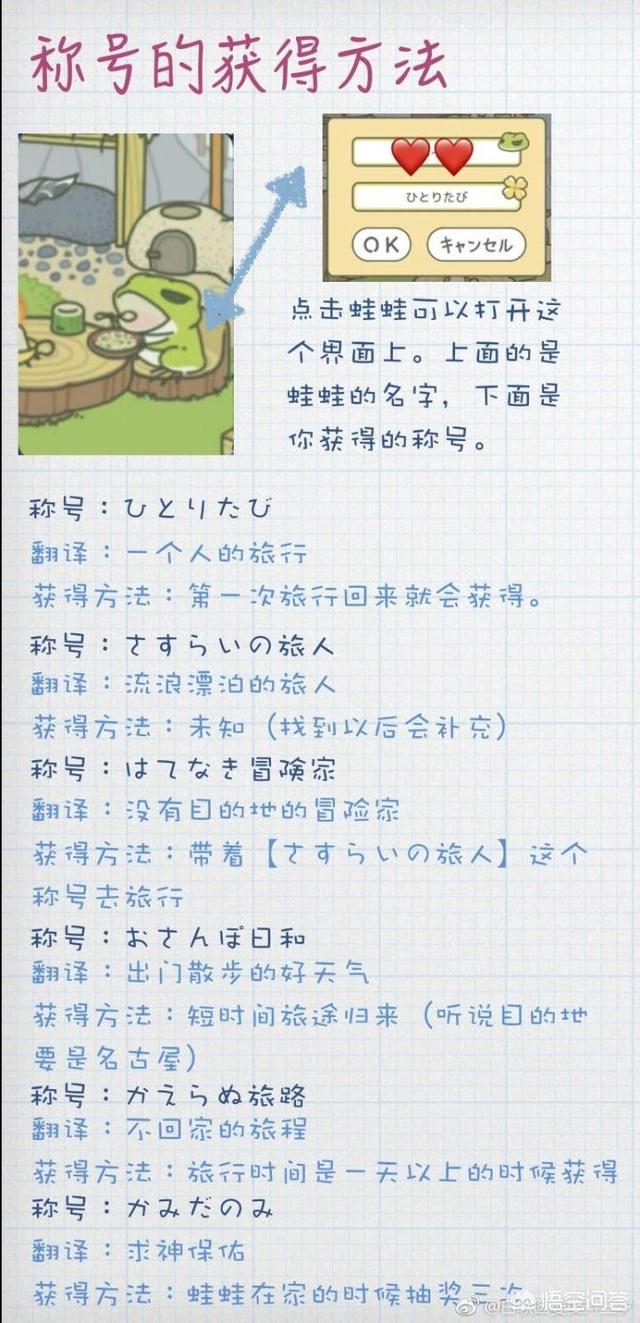 称号的获得方法
ひとりたび
OK
キャンセル
点击蛙蛙可以打开这
个界面上。上面的是
蛙蛙的名字，下面是
你获得的称号。
称号：ひとりたび
翻译：一个人的旅行
获得方法：第一次旅行回来就会获得。
称号：さすらいの旅人
翻译：流浪漂泊的旅人
获得方法：未知（找到以后会补充）
称号：はてなき冒険家
翻译：没有目的地的冒险家
获得方法：带着【さすらいの旅人】这个
称号去旅行
称号：おさんぽ日和
翻译：出门散步的好天气
获得方法：短时间旅途归来（听说目的地
要是名古屋）
称号：かえらぬ旅路
翻译：不回家的旅程
获得方法：旅行时间是一天以上的时候获得
称号：かみだのみ
翻译：求神保佑
获得方法：蛙蛙在家的时候抽奖三次
悟空问答